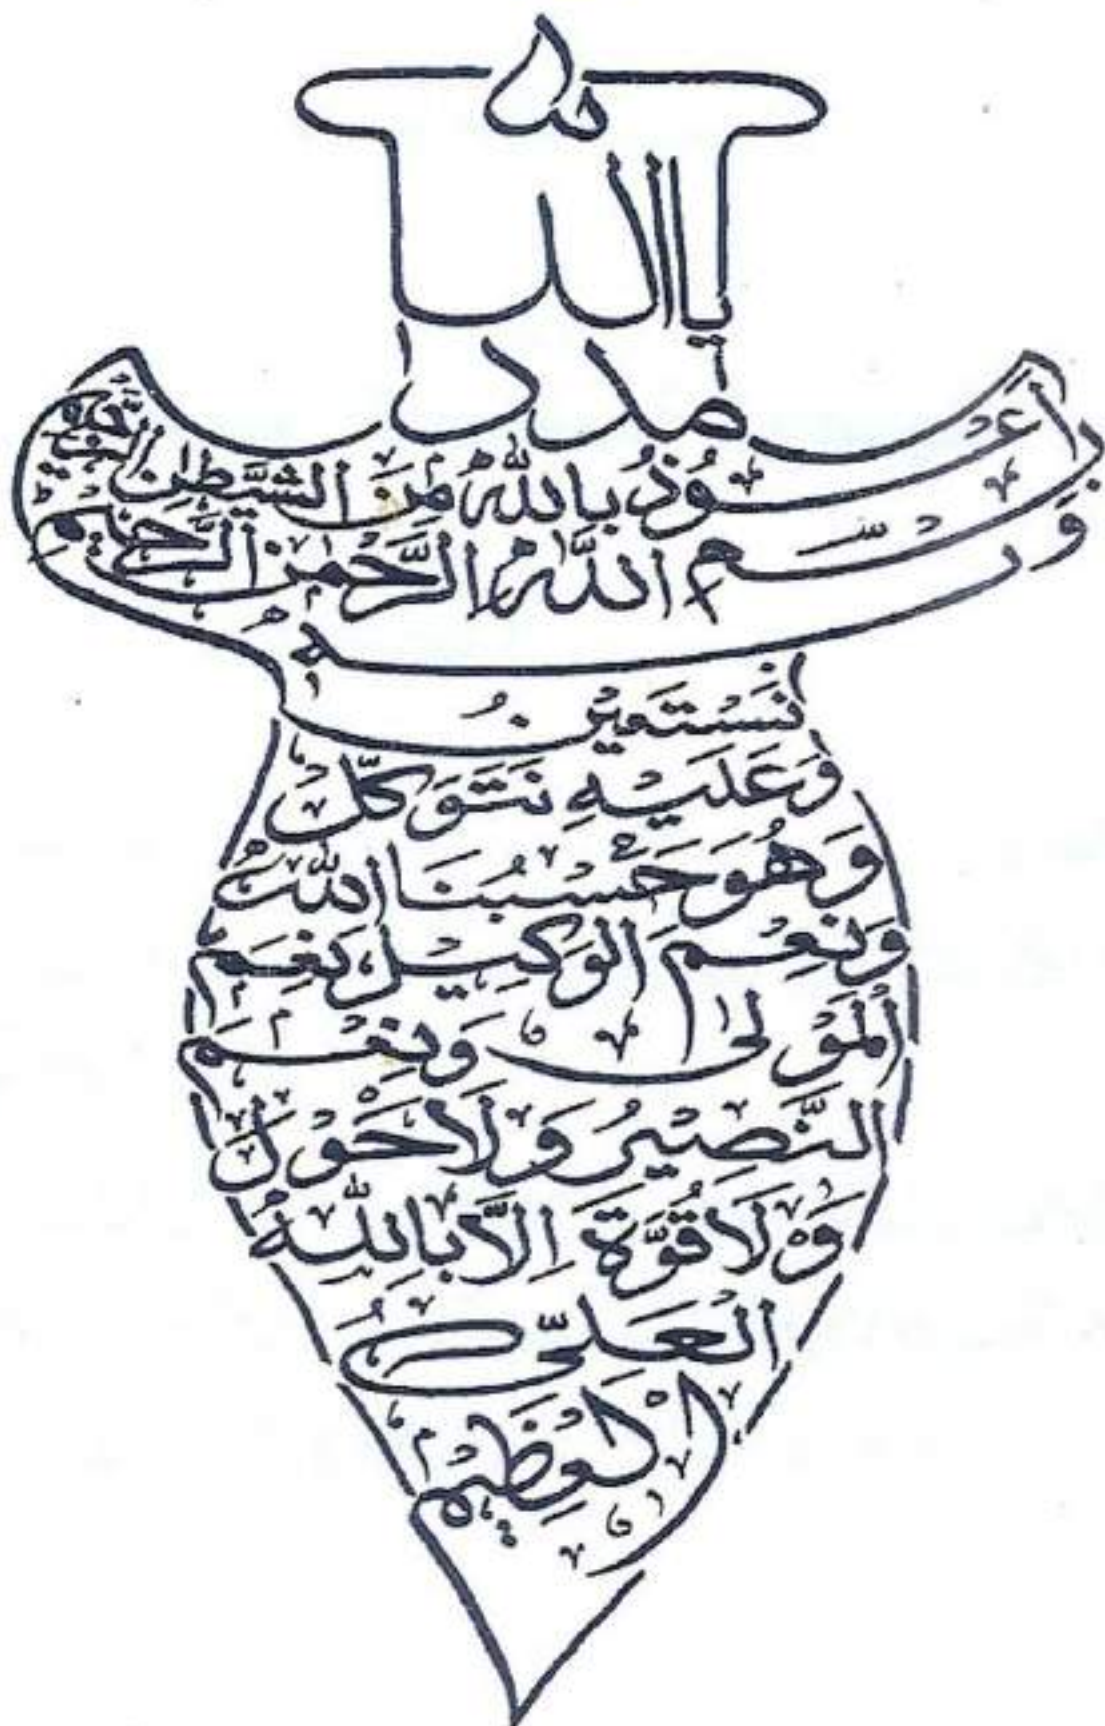 يا الله
مدد
أعوذ بالله من الشيطن الرجيم
وبسم الله الرحمن الرحيم
به
نَسْتَعِينُ
وَعَلَيْهِ نَتَوَكَّلُ
وَهُوَ حَسْبُنَا اللهُ
وَنِعْمَ الْوَكِيل نِعْمَ
الْمَوْلى وَنِعْمَ
النَّصِيرُ وَلَا حَوْلَ
وَلَا قُوَّةَ اِلَّا بِاللهِ
الْعَلِيِّ
الْعَظِيمِ